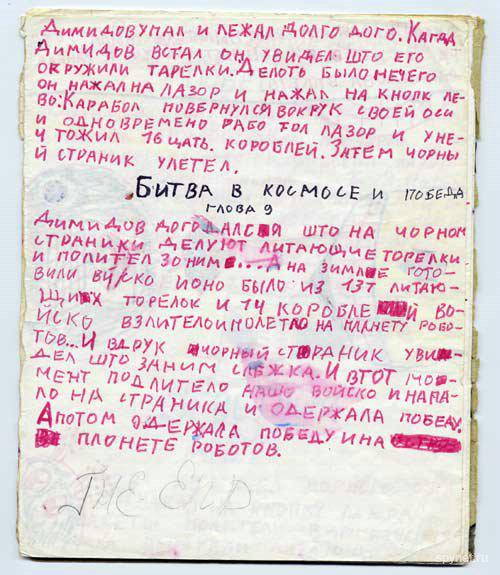 ДИМИДОВ УПАЛ И ЛЕЖАЛ ДОЛГО ДОГО. КАГДА
ДИМИДОВ ВСТАЛ ОН УВИДЕЛ ШТО ЕГО
ОКРУЖИЛИ ТАРЕЛКИ. ДЕЛОТЬ БЫЛО НЕЧЕГО
ОН НАЖАЛ НА ЛАЗОР И НАЖАЛ НА КНОПК ЛЕ-
ВО. КАРАБОЛ ПОВЕРНУЛСЯ ВОКРУК СВОЕЙ ОСИ
И ОДНОВРЕМЕНО РАБО ТОЛ ЛАЗОР И УНЕ-
Ч ТОЖИЛ 16 ЩАТЬ. КОРОБЛЕЙ. ЗАТЕМ ЧОРНЫ
Й СТРАНИК УЛЕТЕЛ.
БИТВА В КОСМОСЕ И ПОБЕДА
ГЛОВА 9
ДИМИДОВ ДОГОДАЛСЯ ШТО НА ЧОРНОМ
СТРАНИКИ ДЕЛУЮТ ЛИТАЮЩИЕ ТОРЕЛКИ.
И ПОЛИТЕЛ ЗО НИМ... А НА ЗИМЛЕ ГОТО-
ВИЛИ ВИСКО ИОНО БЫЛО ИЗ 13Т ЛИТАЮ-
ЩИХ ТОРЕЛОК И 14 КОРОБЛЕ Й ВО-
ЙСКО ВЗЛИТЕЛО И ПОЛЕТЕЛО НА ПЛАНЕТУ РОБО-
ТОВ... И ВДРУК ЧОРНЫЙ СТОРАНИК УВИ-
ДЕЛ ШТО ЗАНИМ СЛЕЖКА. И ВТОТ МО-
МЕНТ ПОДЛИТЕЛО НАШО ВОЙСКО И НАПА-
ЛО НА СТРАНИКА И ОДЕРЖАЛА ПОБЕДУ.
А ПОТОМ ОДЕРЖАЛА ПОБЕДУ И НА
ПЛОНЕТЕ РОБОТОВ.
THE END
spynet.ru